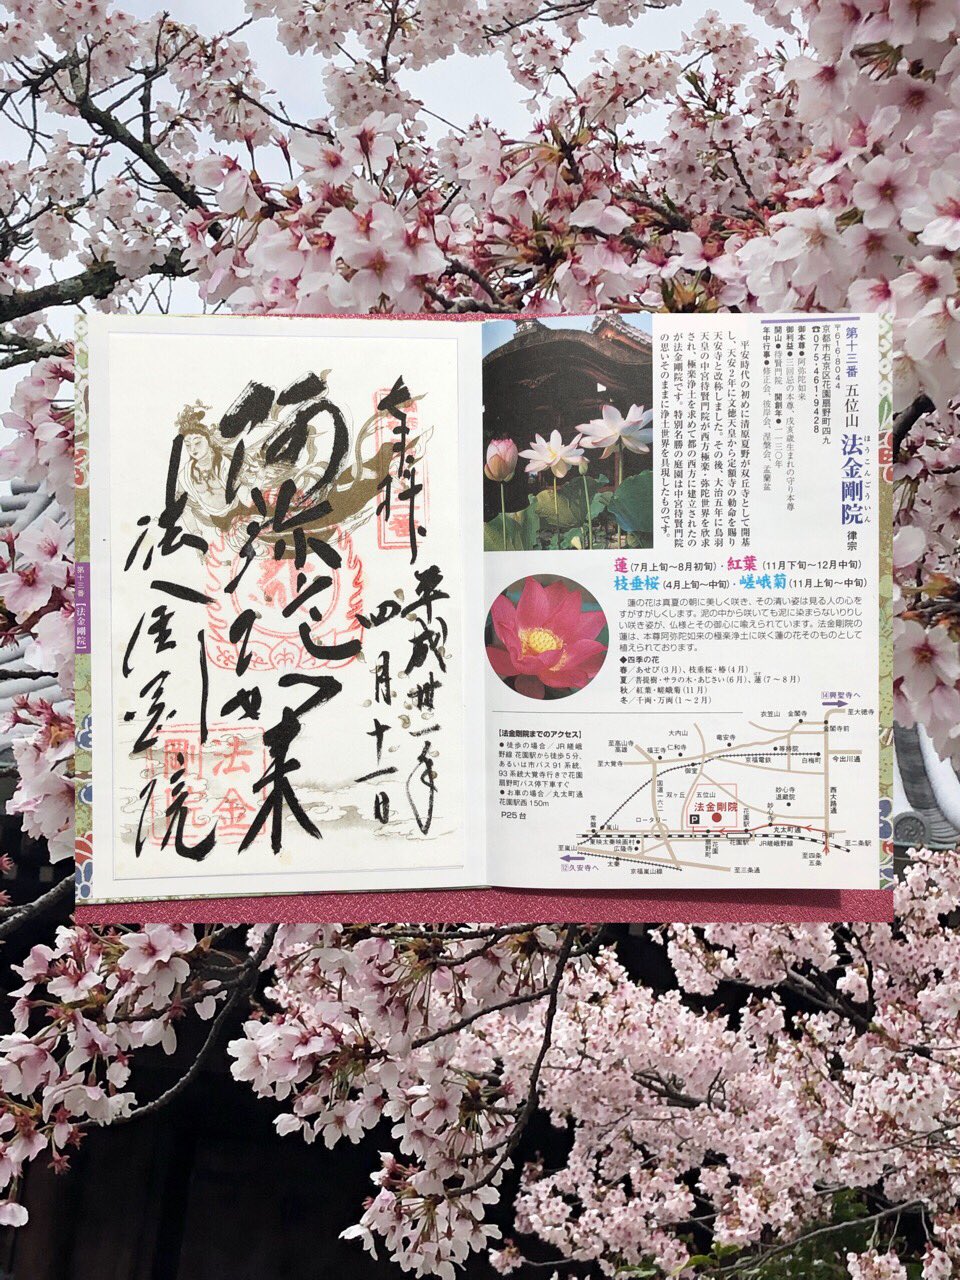 第十三番 五位山 法金剛院 律宗
ほうこんごういん
〒616-8044
京都市右京区花園扇野町四九
☎075-461-9428
御本尊●阿弥陀如来
御利益●三回忌の本尊、戌亥歳生まれの守り本尊
開山●待賢門院 開創年●一一三〇年
年中行事●修正会、彼岸会、涅槃会、盂蘭盆
平安時代の初めに清原夏野が双丘寺として開基
し、天安2年に文徳天皇から定額寺の勅命を賜り
天安寺と改称しました。その後、大治五年に鳥羽
天皇の中宮待賢門院が西方極楽・弥陀世界を欣求
され、極楽浄土を求めて都の西方に建立されたの
が法金剛院です。特別名勝の庭園は中宮待賢門院
の思いそのままに浄土世界を具現したものです。
蓮(7月上旬〜8月初旬)・紅葉(11月下旬〜12月中旬)
枝垂桜(4月上旬〜中旬)・嵯峨菊(11月上旬〜中旬)
蓮の花は真夏の朝に美しく咲き、その清い姿は見る人の心を
すがすがしくします。泥の中から咲いても泥に染まらないりりし
い咲き姿が、仏様とその御心に喩えられています。法金剛院の
蓮は、本尊阿弥陀如来の極楽浄土に咲く蓮の花そのものとして
植えられております。
◆四季の花
春/あせび(3月)、枝垂桜・椿(4月)
夏/菩提樹・サラの木・あじさい(6月)、蓮(7〜8月)
秋/紅葉・嵯峨菊(11月)
冬/千両・万両(1〜2月)
【法金剛院までのアクセス】
●徒歩の場合/JR嵯峨
野線 花園駅から徒歩5分、
あるいは市バス91系統、
93系統大覚寺行きで花園
扇野町バス停下車すぐ
●お車の場合/丸太町通
花園駅西150m
P25台
⑭興聖寺へ
至大徳寺
衣笠山
金閣寺
金閣寺前
大内山
竜安寺
至高山寺
高雄
福王寺
仁和寺
等持院
至大覚寺
御室
京福電鉄
白梅町
今出川通
国道一六二
双ヶ丘
五位山
妙心寺
退蔵院
西大路通
法金剛院
P
ロータリー
花園駅
妙心寺
常盤
嵐山
丸太町通
円町
東映太秦映画村
広隆寺
扇野町
花園
花園駅
JR嵯峨野線
至二条駅
至嵐山
太秦
至四条
五条
⑫久安寺へ
京福嵐山線
至三条通
奉拝
平成卅一年
四月十一日
阿弥陀如来
法金剛院
法金
剛院
第十三番【法金剛院】